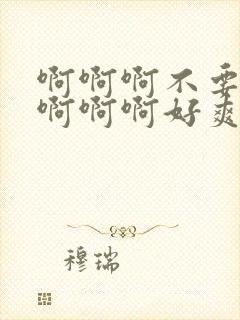 啊啊啊不要
啊啊啊好爽
穆瑞